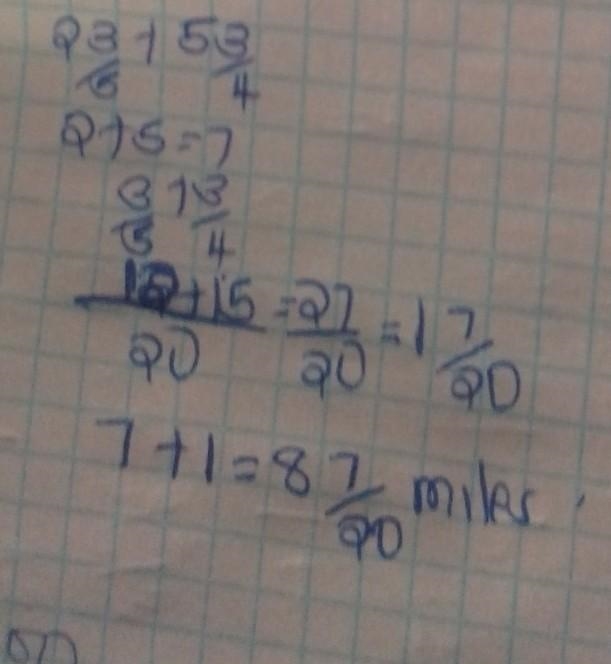 2 3/5 + 5 3/4
2+5=7
3/5 + 3/4
12+15/20 = 27/20 = 1 7/20
7+1=8 7/20 miles.